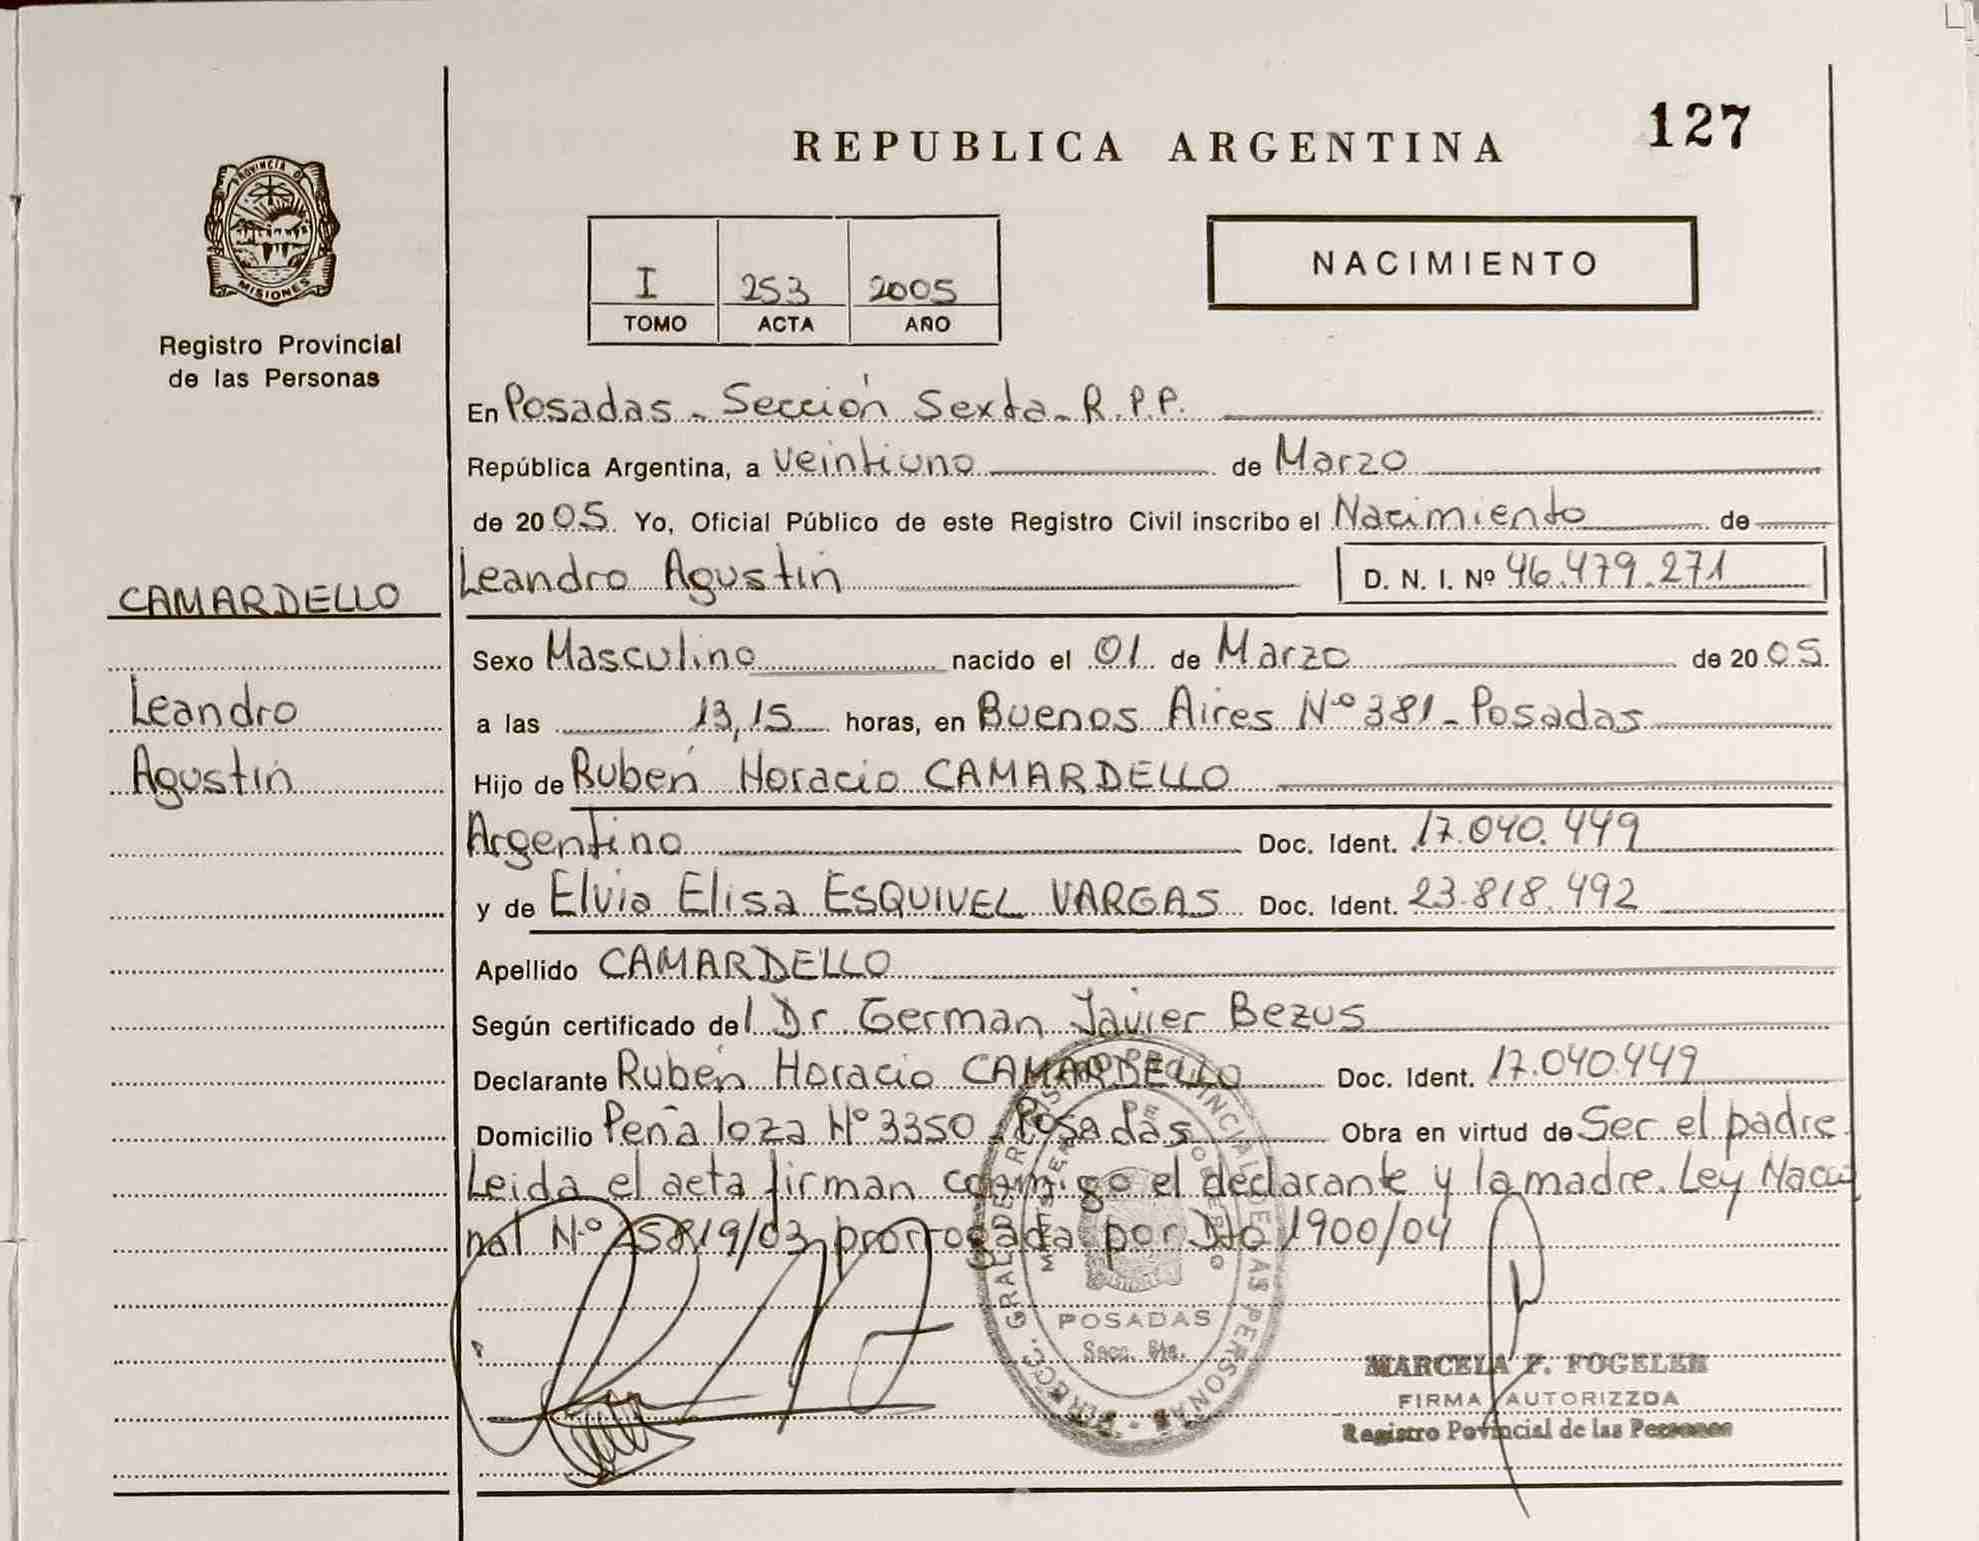 127
REPUBLICA ARGENTINA
PROVINCIA DE
MISIONES
Registro Provincial
de las Personas
NACIMIENTO
I 253 2005
TOMO ACTA AÑO
En Posadas - Sección Sexta - R.P.P.
República Argentina, a Veintiuno de Marzo
de 2005. Yo, Oficial Público de este Registro Civil inscribo el Nacimiento de
CAMARDELLO
Leandro
Agustín
Leandro Agustín D. N. I. Nº 46.479.271
Sexo Masculino nacido el 01 de Marzo de 2005.
a las 13,15 horas, en Buenos Aires Nº 381 - Posadas
Hijo de Rubén Horacio CAMARDELLO
Argentino Doc. Ident. 17.040.449
y de Elvia Elisa ESQUIVEL VARGAS Doc. Ident. 23.818.492
Apellido CAMARDELLO
Según certificado del Dr German Javier Bezus
Declarante Rubén Horacio CAMARDELLO Doc. Ident. 17.040.449
Domicilio Peñaloza Nº 3350 Posadas Obra en virtud de Ser el padre.
Leida el acta firman conmigo el declarante y la madre. Ley Nacio
nal Nº 25819/03 prorrogada por Dto 1900/04
DIRECC. GRAL. DE REGISTRO PROVINCIAL DE LAS PERSONAS
POSADAS
Secc. 6ta.
MARCELA F. FOGELER
FIRMA AUTORIZZDA
Registro Povincial de las Personas